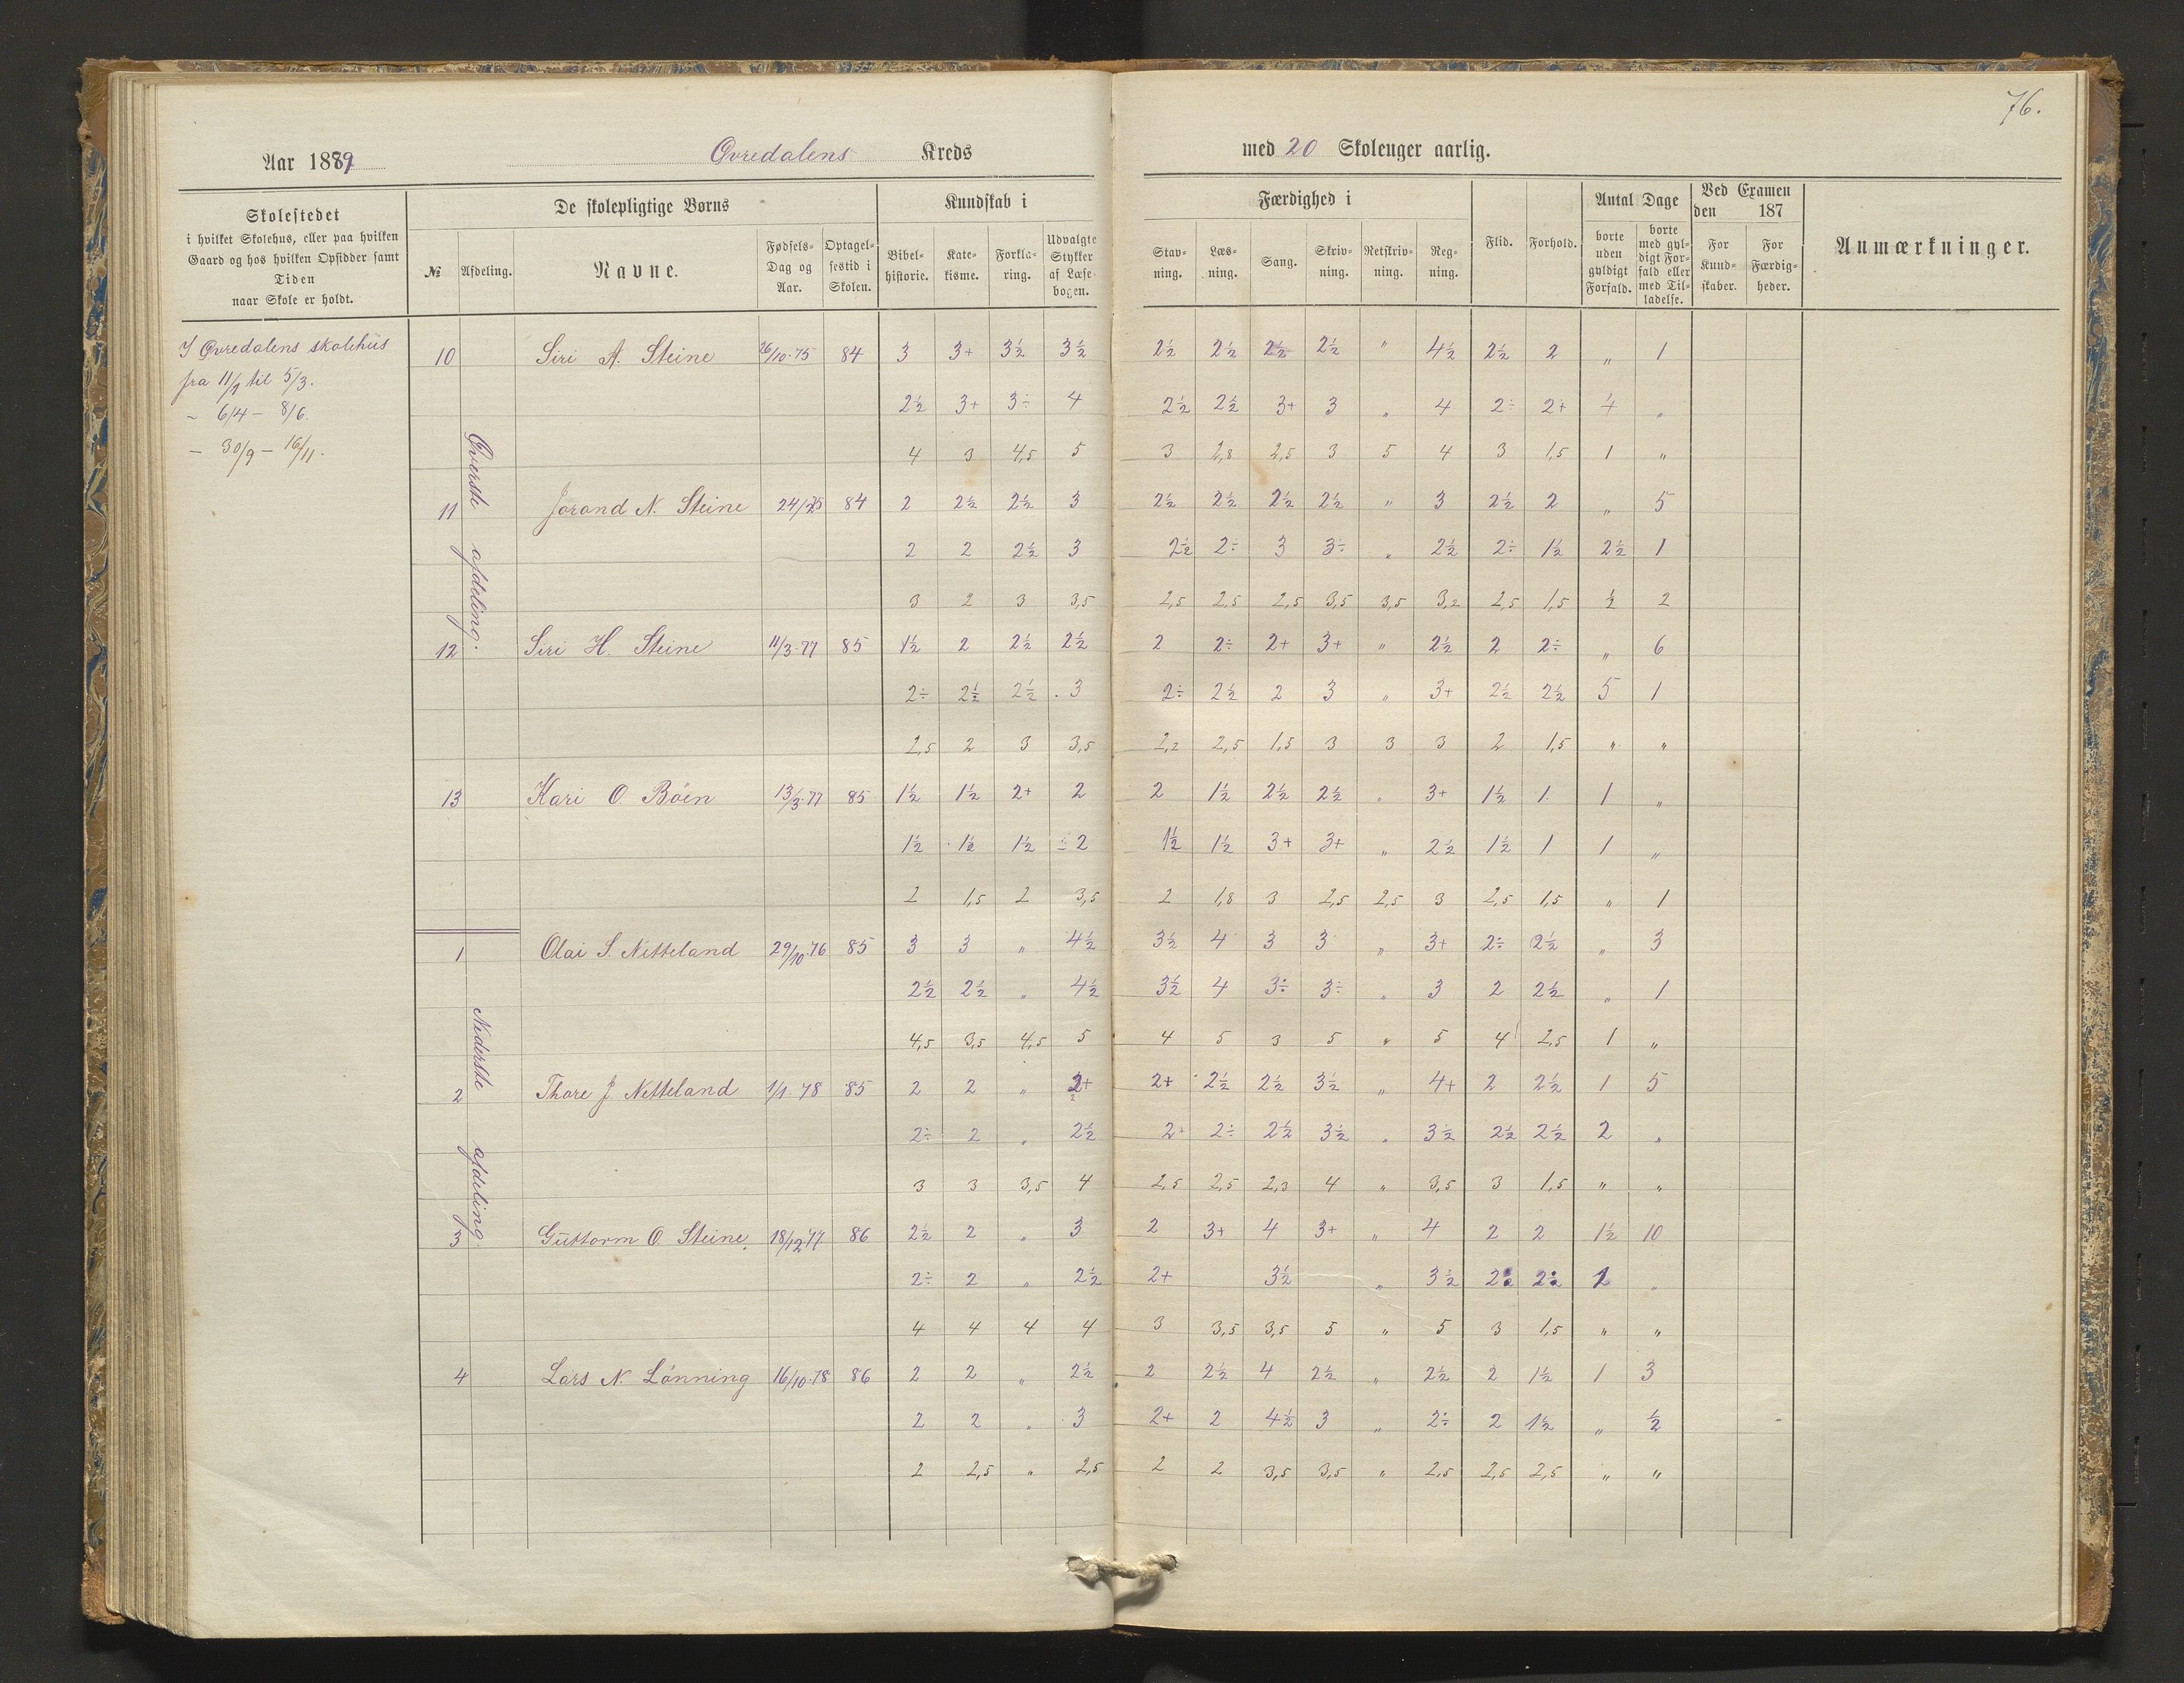 76.
Aar 1889 Øvredalens Kreds med 20 Skoleuger aarlig.
Skolestedet
i hvilket Skolehus, eller paa hvilken
Gaard og hos hvilken Opsidder samt
Tiden
naar Skole er holdt.
De skolepligtige Børns
№ Afdeling. Navne. Fødsels-Dag og Aar. Optagel-sestid i Skolen.
Kundskab i
Bibel-historie. Kate-kisme. Forkla-ring. Udvalgte Stykker af Læse-bogen.
Færdighed i
Stav-ning. Læs-ning. Sang. Skriv-ning. Retskriv-ning. Reg-ning.
Flid. Forhold.
Antal Dage
borte uden gyldigt Forfald. borte med gyl-digt For-fald eller med Til-ladelse.
Ved Examen
den 187
For Kund-skaber. For Færdig-heder.
Anmærkninger.
I Øvredalens skolehus
fra 11/1 til 5/3.
- 6/4 - 8/6.
- 30/9 - 16/11.
Øverste afdeling.
10 Siri A. Steine 26/10-75 84 3 3+ 3½ 3½ 2½ 2½ 2½ 2½ " 4½ 2½ 2 " 1
2½ 3+ 3÷ 4 2½ 2½ 3+ 3 " 4 2÷ 2+ 4 "
4 3 4,5 5 3 2,8 2,5 3 5 4 3 1,5 1 "
11 Jorand N. Steine 84 2 2½ 2½ 3 2½ 2½ 2½ 2½ " 3 2½ 2 " 5
2 2 2½ 3 2½ 2÷ 3 3÷ " 2½ 2÷ 1½ 2½ 1
3 2 3 3,5 2,5 2,5 2,5 3,5 3,5 3,2 2,5 1,5 ½ 2
12 Siri H. Steine 11/3-77 85 1½ 2 2½ 2½ 2 2÷ 2+ 3+ " 2½ 2 2÷ " 6
2÷ 2½ 2½ 3 2÷ 2½ 2 3 " 3+ 2½ 2½ 5 1
2,5 2 3 3,5 2,2 2,5 1,5 3 3 3 2 1,5 " "
13 Kari O. Böen 13/3-77 85 1½ 1½ 2+ 2 2 1½ 2½ 2½ " 3+ 1½ 1 1 "
1½ 1½ 1½ 2 1½ 1½ 3+ 3+ " 2½ 1½ 1 1 "
2 1,5 2 3,5 2 1,8 3 2,5 2,5 3 2,5 1,5 " 1
Nederste afdeling.
1 Olai S. Netteland 29/10-76 85 3 3 " 4½ 3½ 4 3 3 " 3+ 2÷ 2½ " 3
2½ 2½ " 4½ 3½ 4 3÷ 3÷ " 3 2 2½ " 1
4,5 3,5 4,5 5 4 5 3 5 " 5 4 2,5 1 "
2 Thore J. Netteland 1/1-78 85 2 2 " 2+ 2½ 2½ 3½ " 4+ 2 2½ 1 5
2÷ 2 " 2½ 2+ 2÷ 2½ 3½ " 3½ 2½ 2½ 2 "
3 3 3,5 4 2,5 2,5 2,3 4 " 3,5 3 1,5 " "
3 Guttorm O. Steine 18/12-77 86 2½ 2 " 3 2 3+ 4 3+ " 4 2 2 1½ 10
2÷ 2 " 2½ 2+ 3½ " 3½ 2÷ 2÷ "
4 4 4 4 3 3,5 3,5 5 " 5 3 1,5 " "
4 Lars N. Lönning 16/10-78 86 2 2 " 2½ 2 2½ 4 2½ " 2½ 2 1½ 1 3
2 2 " 3 2+ 2 4½ 3 " 2÷ 2 1½ " ½
2 2,5 " 2,5 2 2 3,5 3,5 " 2,5 2,5 2,5 " "